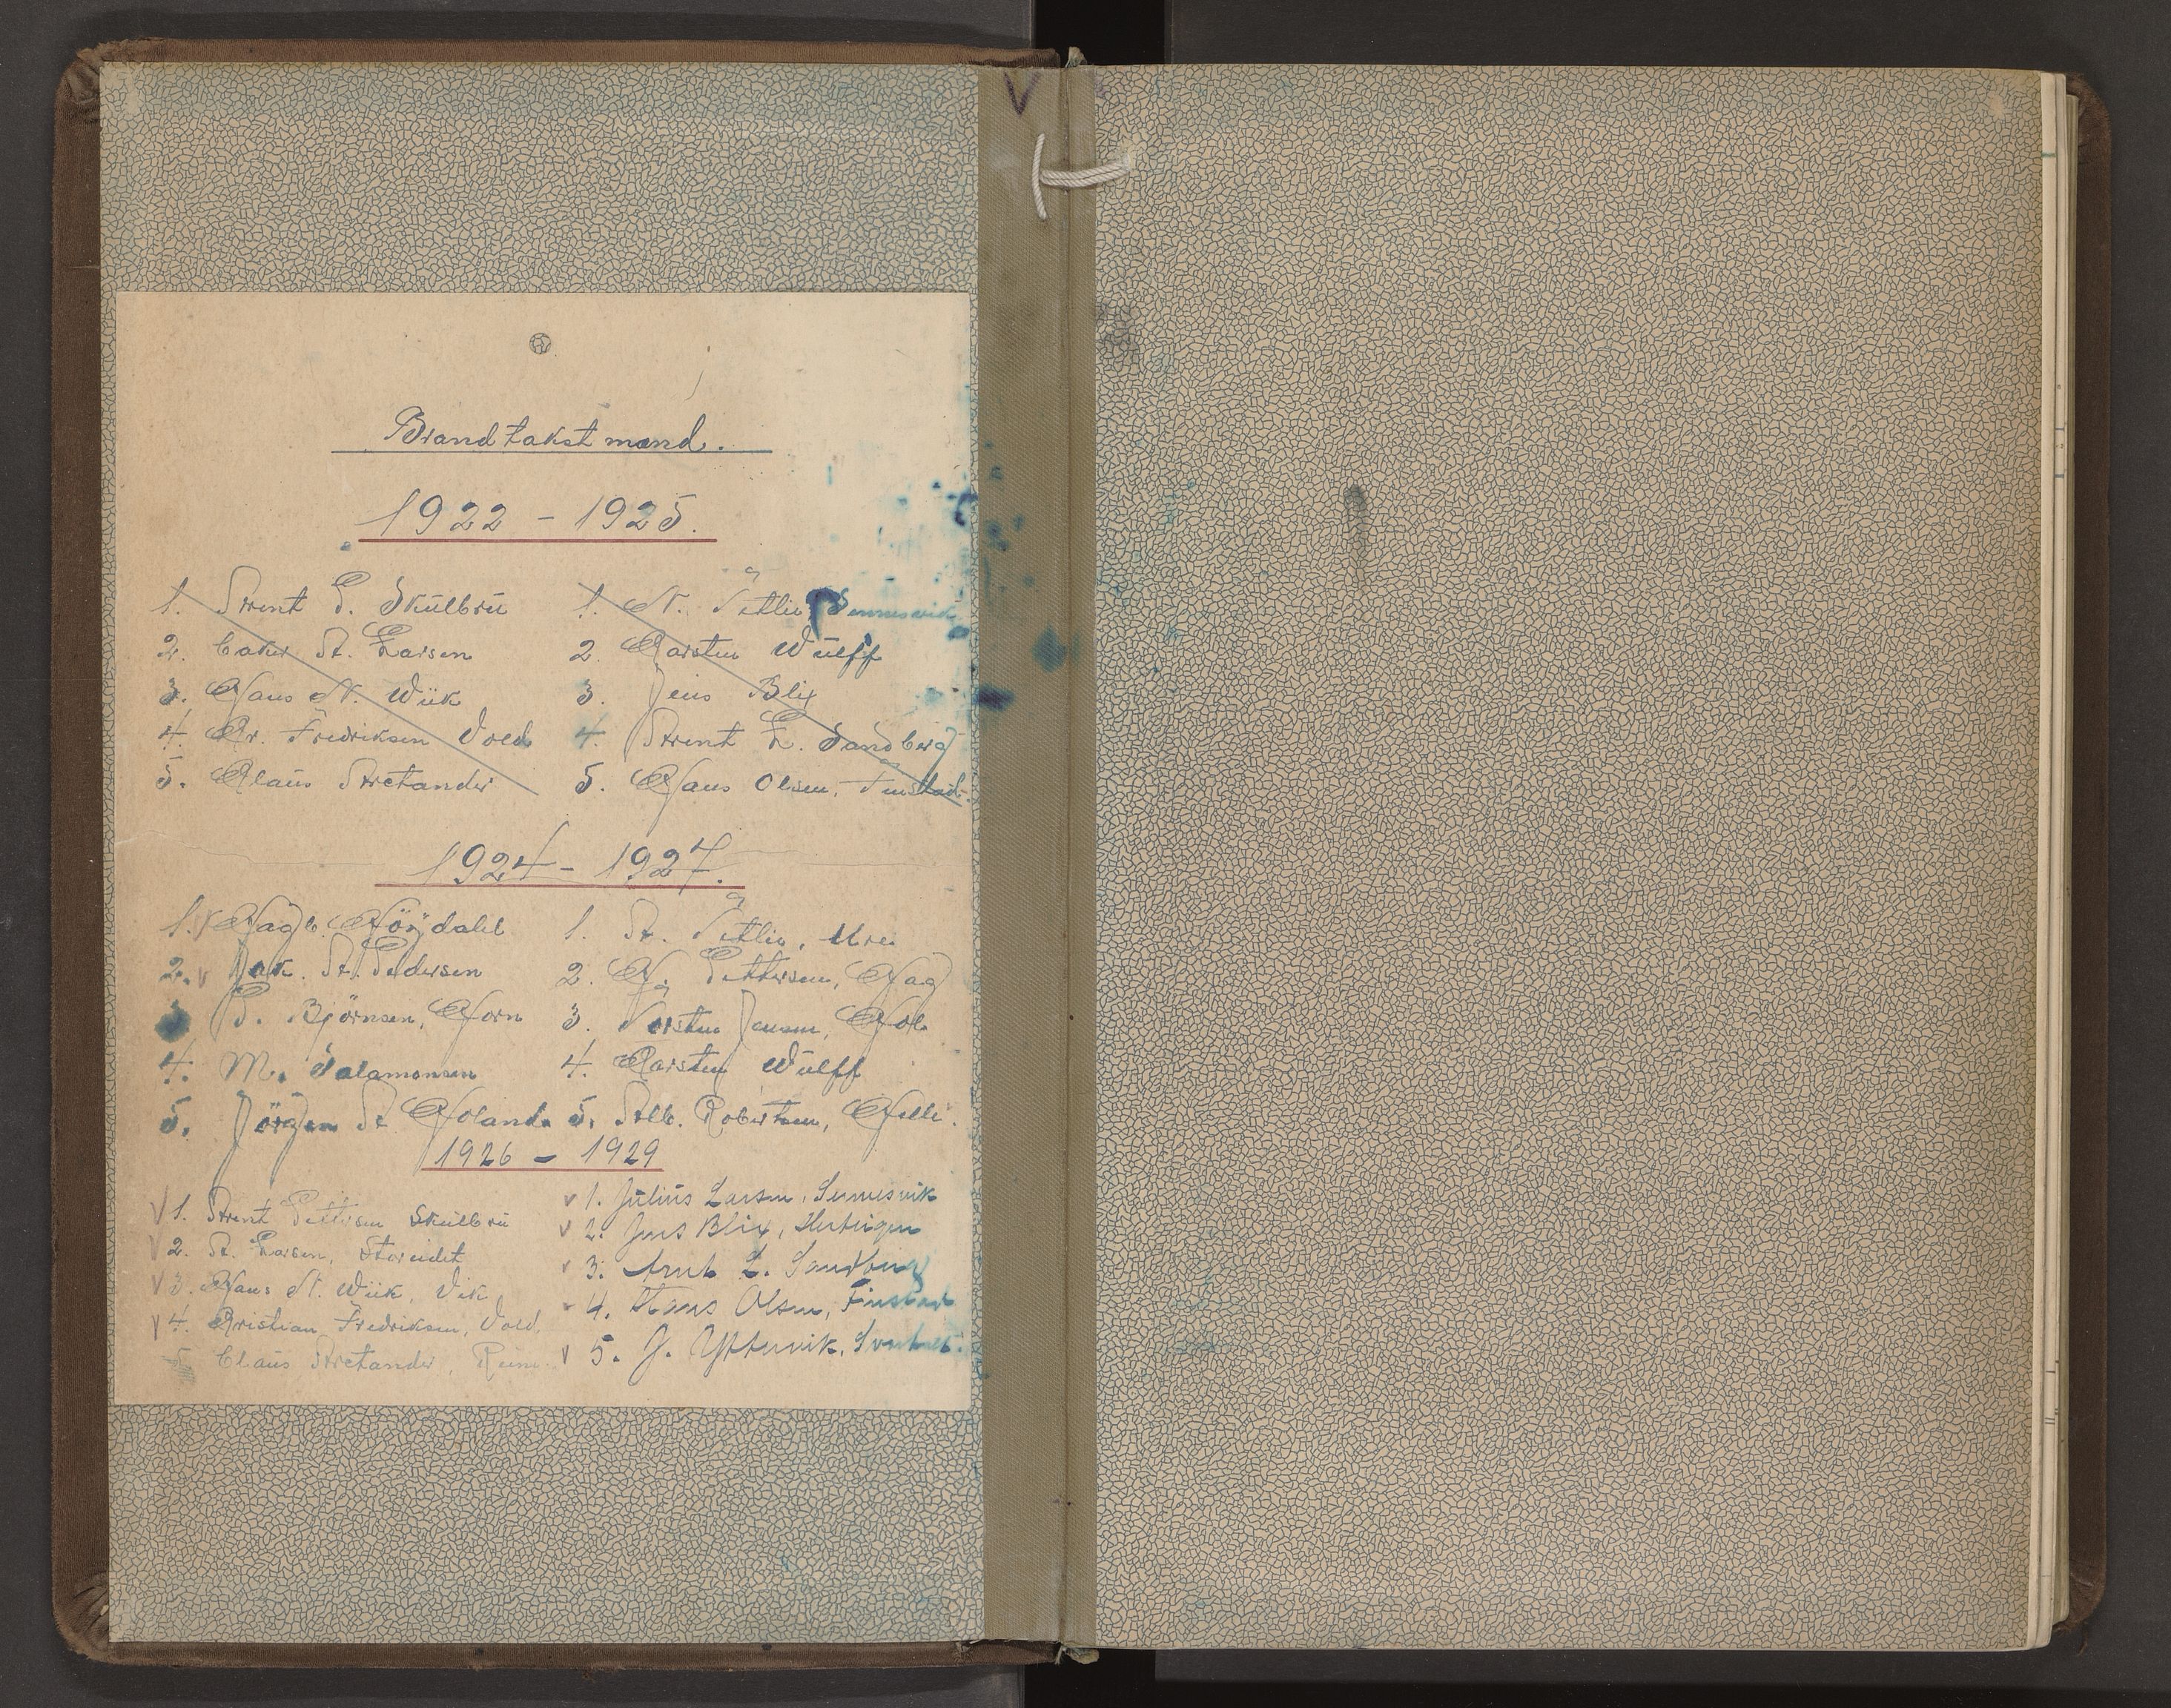 V
Brandtakstmænd.
1922 - 1925.
1. Arent P. Skülbrü
2. Aa. Larsen
3. Hans N. Wiik
4. Kr. Fredriksen Vold
5. Klaüs Aretander
1. N. Sennesvik
2. Karsten Wülff
3. Jens Blix
4. Arent L. Sandberg
5. Hans Olsen, Finstad.
1924 - 1927.
1. Hagb. Höydahl
2. Jak. A. Pedersen
3 P. Björnsen, Horn
4. M. Salamonsen
5. Jörgen A Holand.
1. A.
2. H. Pettersen, Hag
3. Torsten Jensen, Hol.
4. Karsten Wülff
5. Alb. Robertsen, Helle.
1926 - 1929
1. Arent Pettersen Skülbrü
2. A. Larsen,
3. Hans N. Wiik, Vik
4. Kristian Fredriksen, Vold.
5 Claüs Aretander, Reine
1. Jülius Larsen, Sennesvik
2. Jens Blix,
3. Arent L. Sandberg
4. Hans Olsen, Finstad
5. J. Ytterviik,